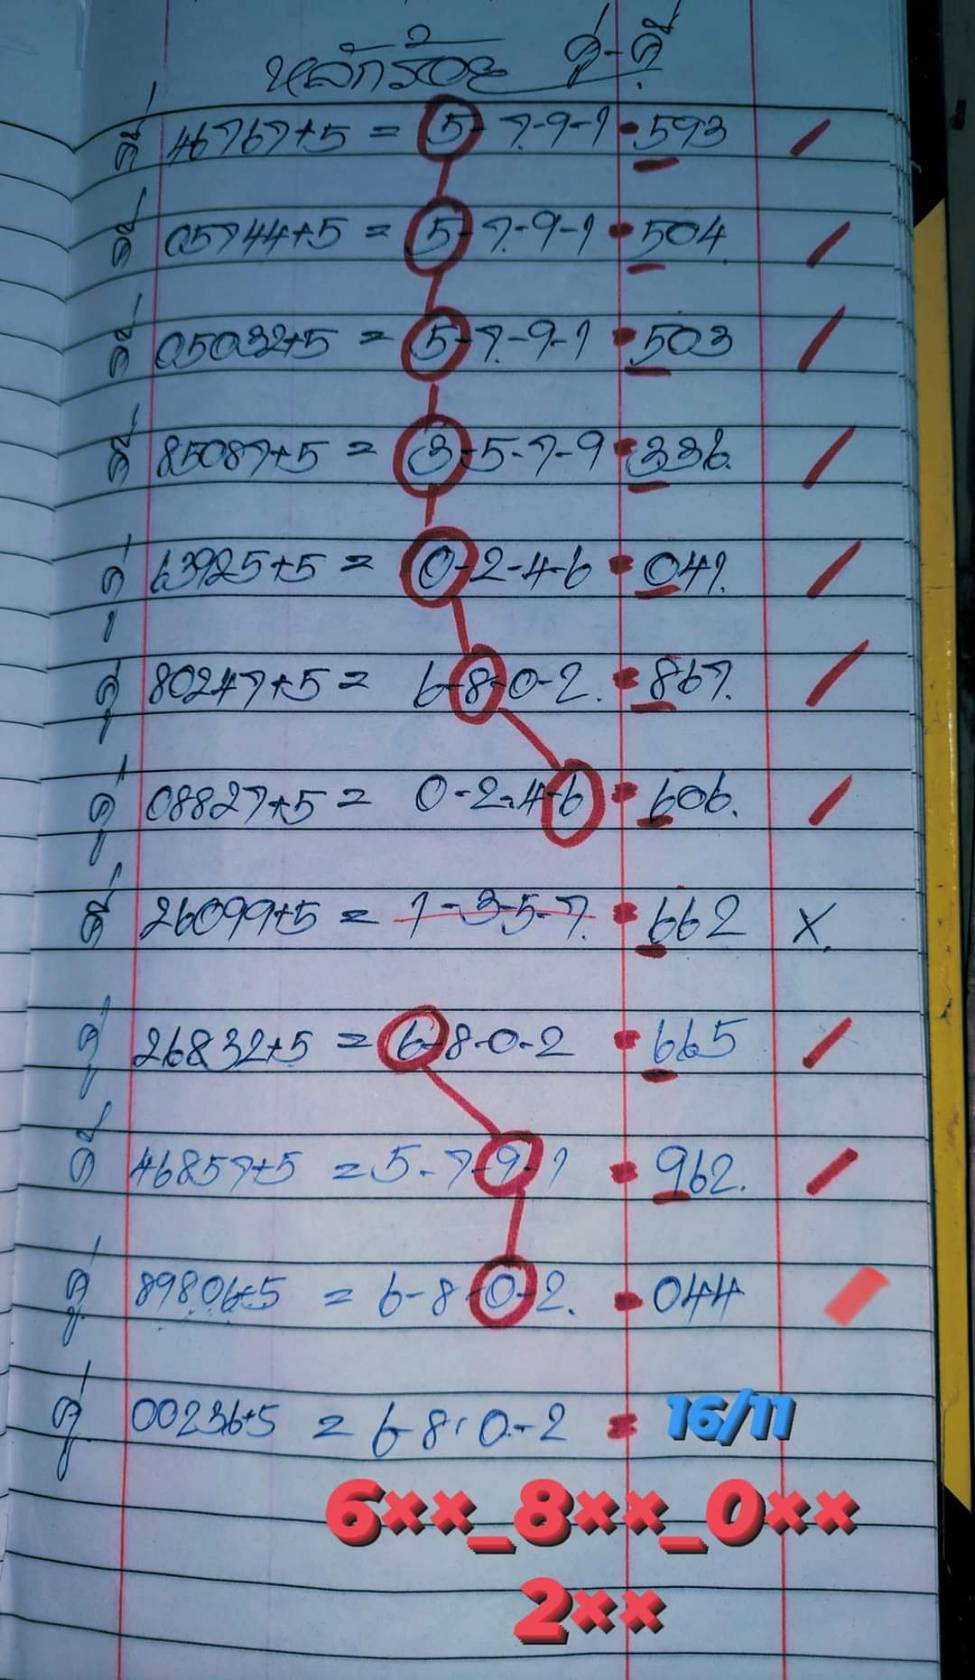 หลักร้อย คู่-คี่
คี่ 46767+5 = 5-7-9-1 • 593 /
คี่ 05744+5 = 5-7-9-1 • 504 /
คี่ 05032+5 = 5-7-9-1 • 503 /
คี่ 85087+5 = 3-5-7-9 • 336. /
คู่ 63925+5 = 0-2-4-6 • 041. /
คู่ 80247+5 = 6-8-0-2. • 867. /
คู่ 08827+5 = 0-2-4-6 • 606. /
คี่ 26099+5 = 1-3-5-7. • 662 X.
คู่ 26832+5 = 6-8-0-2 • 665 /
คี่ 46857+5 = 5-7-9-1 • 962. /
คู่ 89806+5 = 6-8-0-2. • 044 /
คู่ 00236+5 = 6-8-0-2 • 16/11
6××_8××_0××
2××